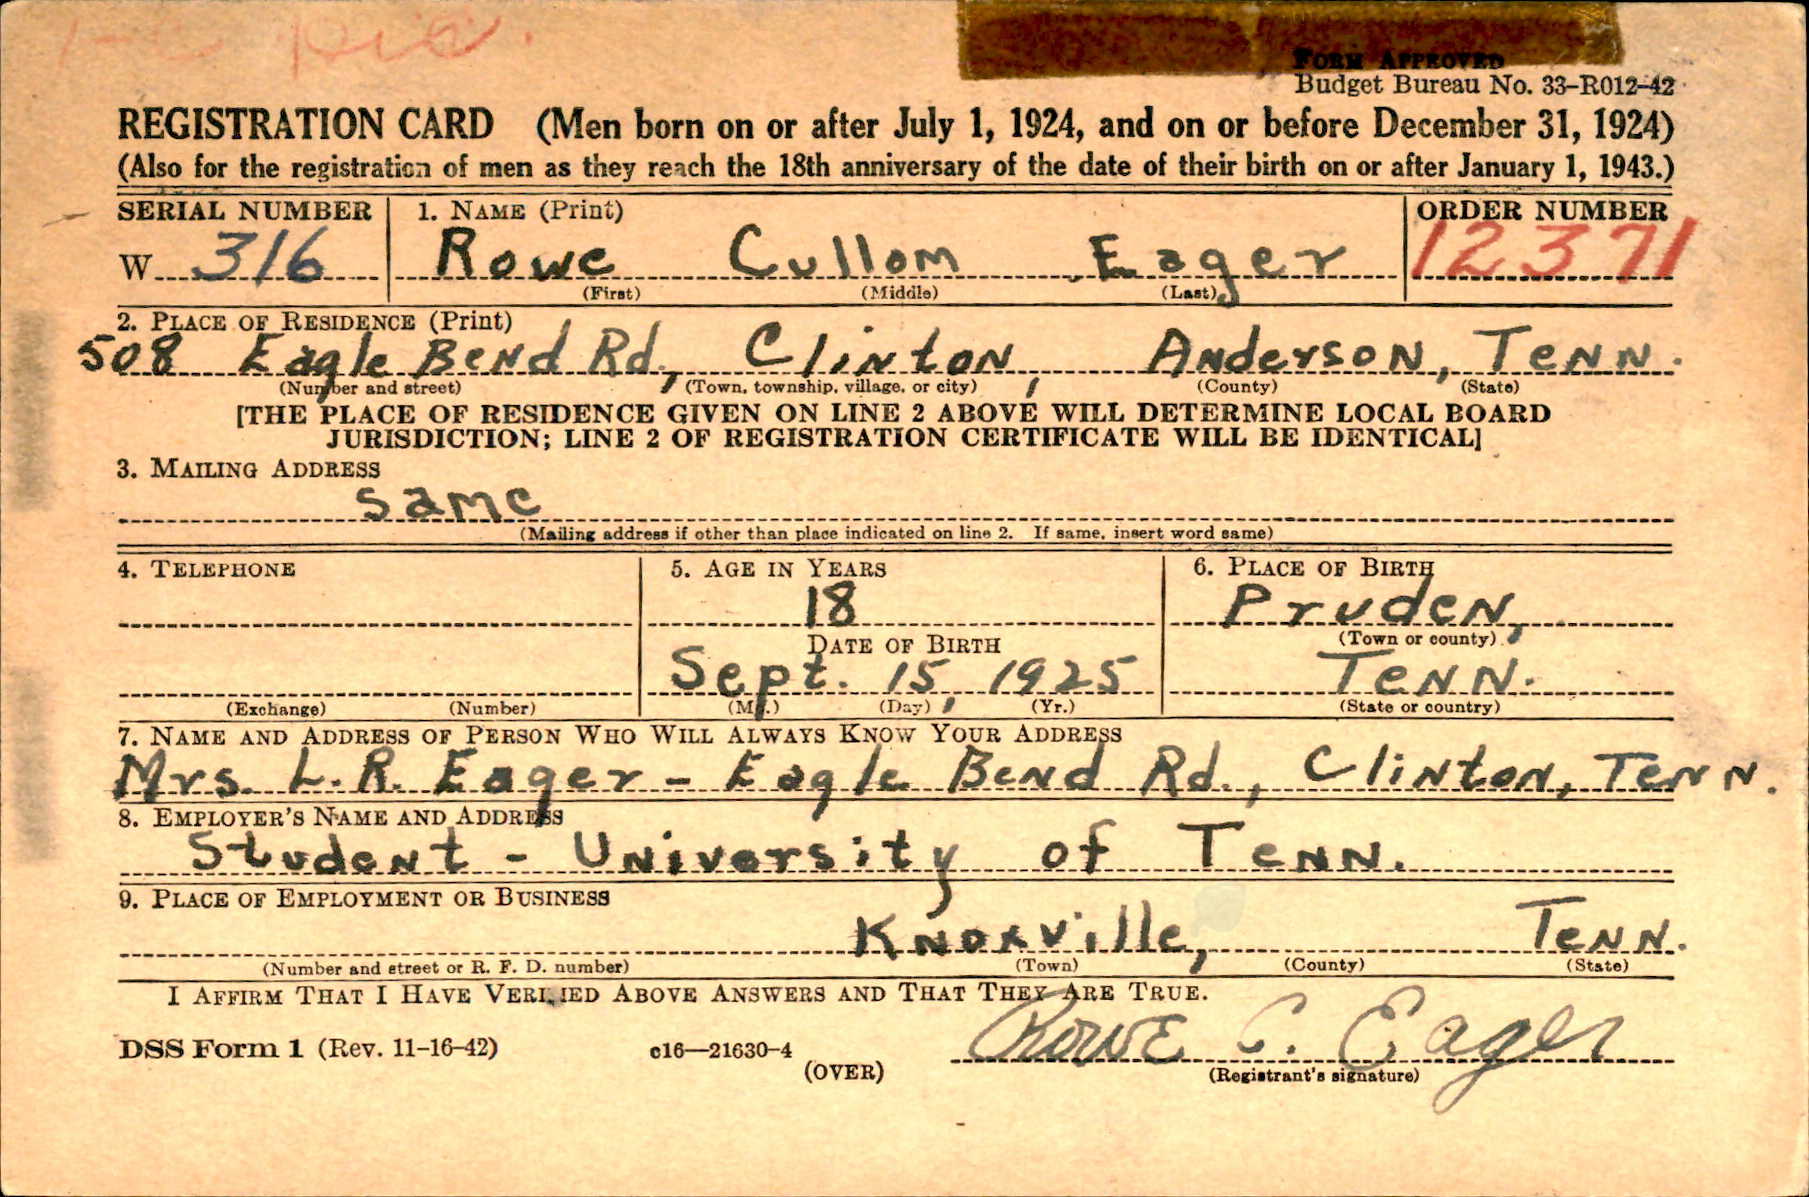 FORM APPROVED
Budget Bureau No. 33-R012-42
REGISTRATION CARD (Men born on or after July 1, 1924, and on or before December 31, 1924)
(Also for the registration of men as they reach the 18th anniversary of the date of their birth on or after January 1, 1943.)
SERIAL NUMBER 1. NAME (Print) ORDER NUMBER
W 316 Rowe Cullom Eager 12371
(First) (Middle) (Last)
2. PLACE OF RESIDENCE (Print)
508 Eagle Bend Rd., Clinton, Anderson, Tenn.
(Number and street) (Town, township, village, or city) (County) (State)
[THE PLACE OF RESIDENCE GIVEN ON LINE 2 ABOVE WILL DETERMINE LOCAL BOARD
JURISDICTION; LINE 2 OF REGISTRATION CERTIFICATE WILL BE IDENTICAL]
3. MAILING ADDRESS
same
(Mailing address if other than place indicated on line 2. If same, insert word same)
4. TELEPHONE 5. AGE IN YEARS 6. PLACE OF BIRTH
18 Pruden,
DATE OF BIRTH (Town or county)
Sept. 15, 1925 Tenn.
(Exchange) (Number) (Mo.) (Day) (Yr.) (State or country)
7. NAME AND ADDRESS OF PERSON WHO WILL ALWAYS KNOW YOUR ADDRESS
Mrs. L. R. Eager - Eagle Bend Rd., Clinton, Tenn.
8. EMPLOYER'S NAME AND ADDRESS
Student - University of Tenn.
9. PLACE OF EMPLOYMENT OR BUSINESS
Knoxville, Tenn.
(Number and street or R. F. D. number) (Town) (County) (State)
I AFFIRM THAT I HAVE VERIFIED ABOVE ANSWERS AND THAT THEY ARE TRUE.
DSS Form 1 (Rev. 11-16-42) c16—21630-4 Rowe C. Eager
(OVER) (Registrant's signature)